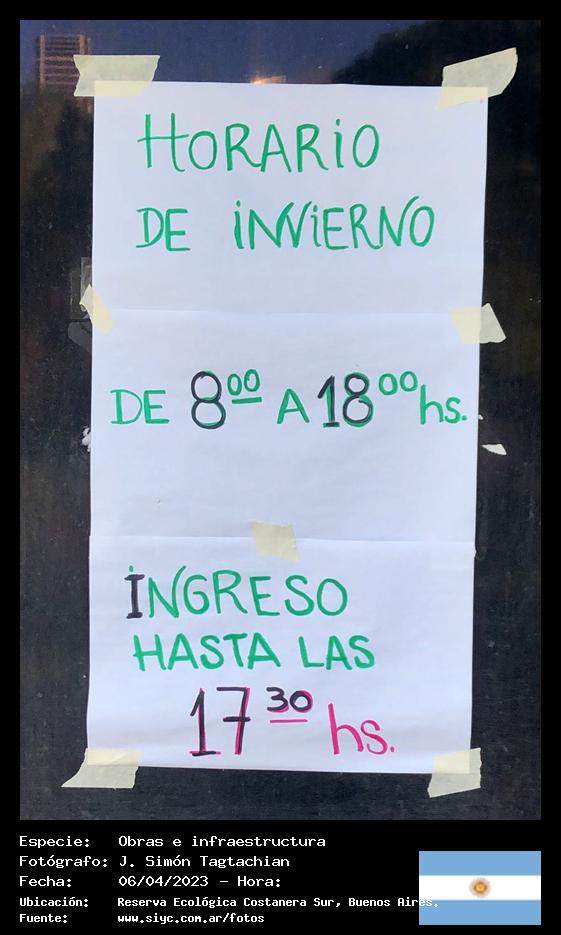 HORARIO
DE INVIERNO
DE 8⁰⁰ A 18⁰⁰ hs.
INGRESO
HASTA LAS
17³⁰ hs.
Especie: Obras e infraestructura
Fotógrafo: J. Simón Tagtachian
Fecha: 06/04/2023 - Hora:
Ubicación: Reserva Ecológica Costanera Sur, Buenos Aires.
Fuente: www.siyc.com.ar/fotos